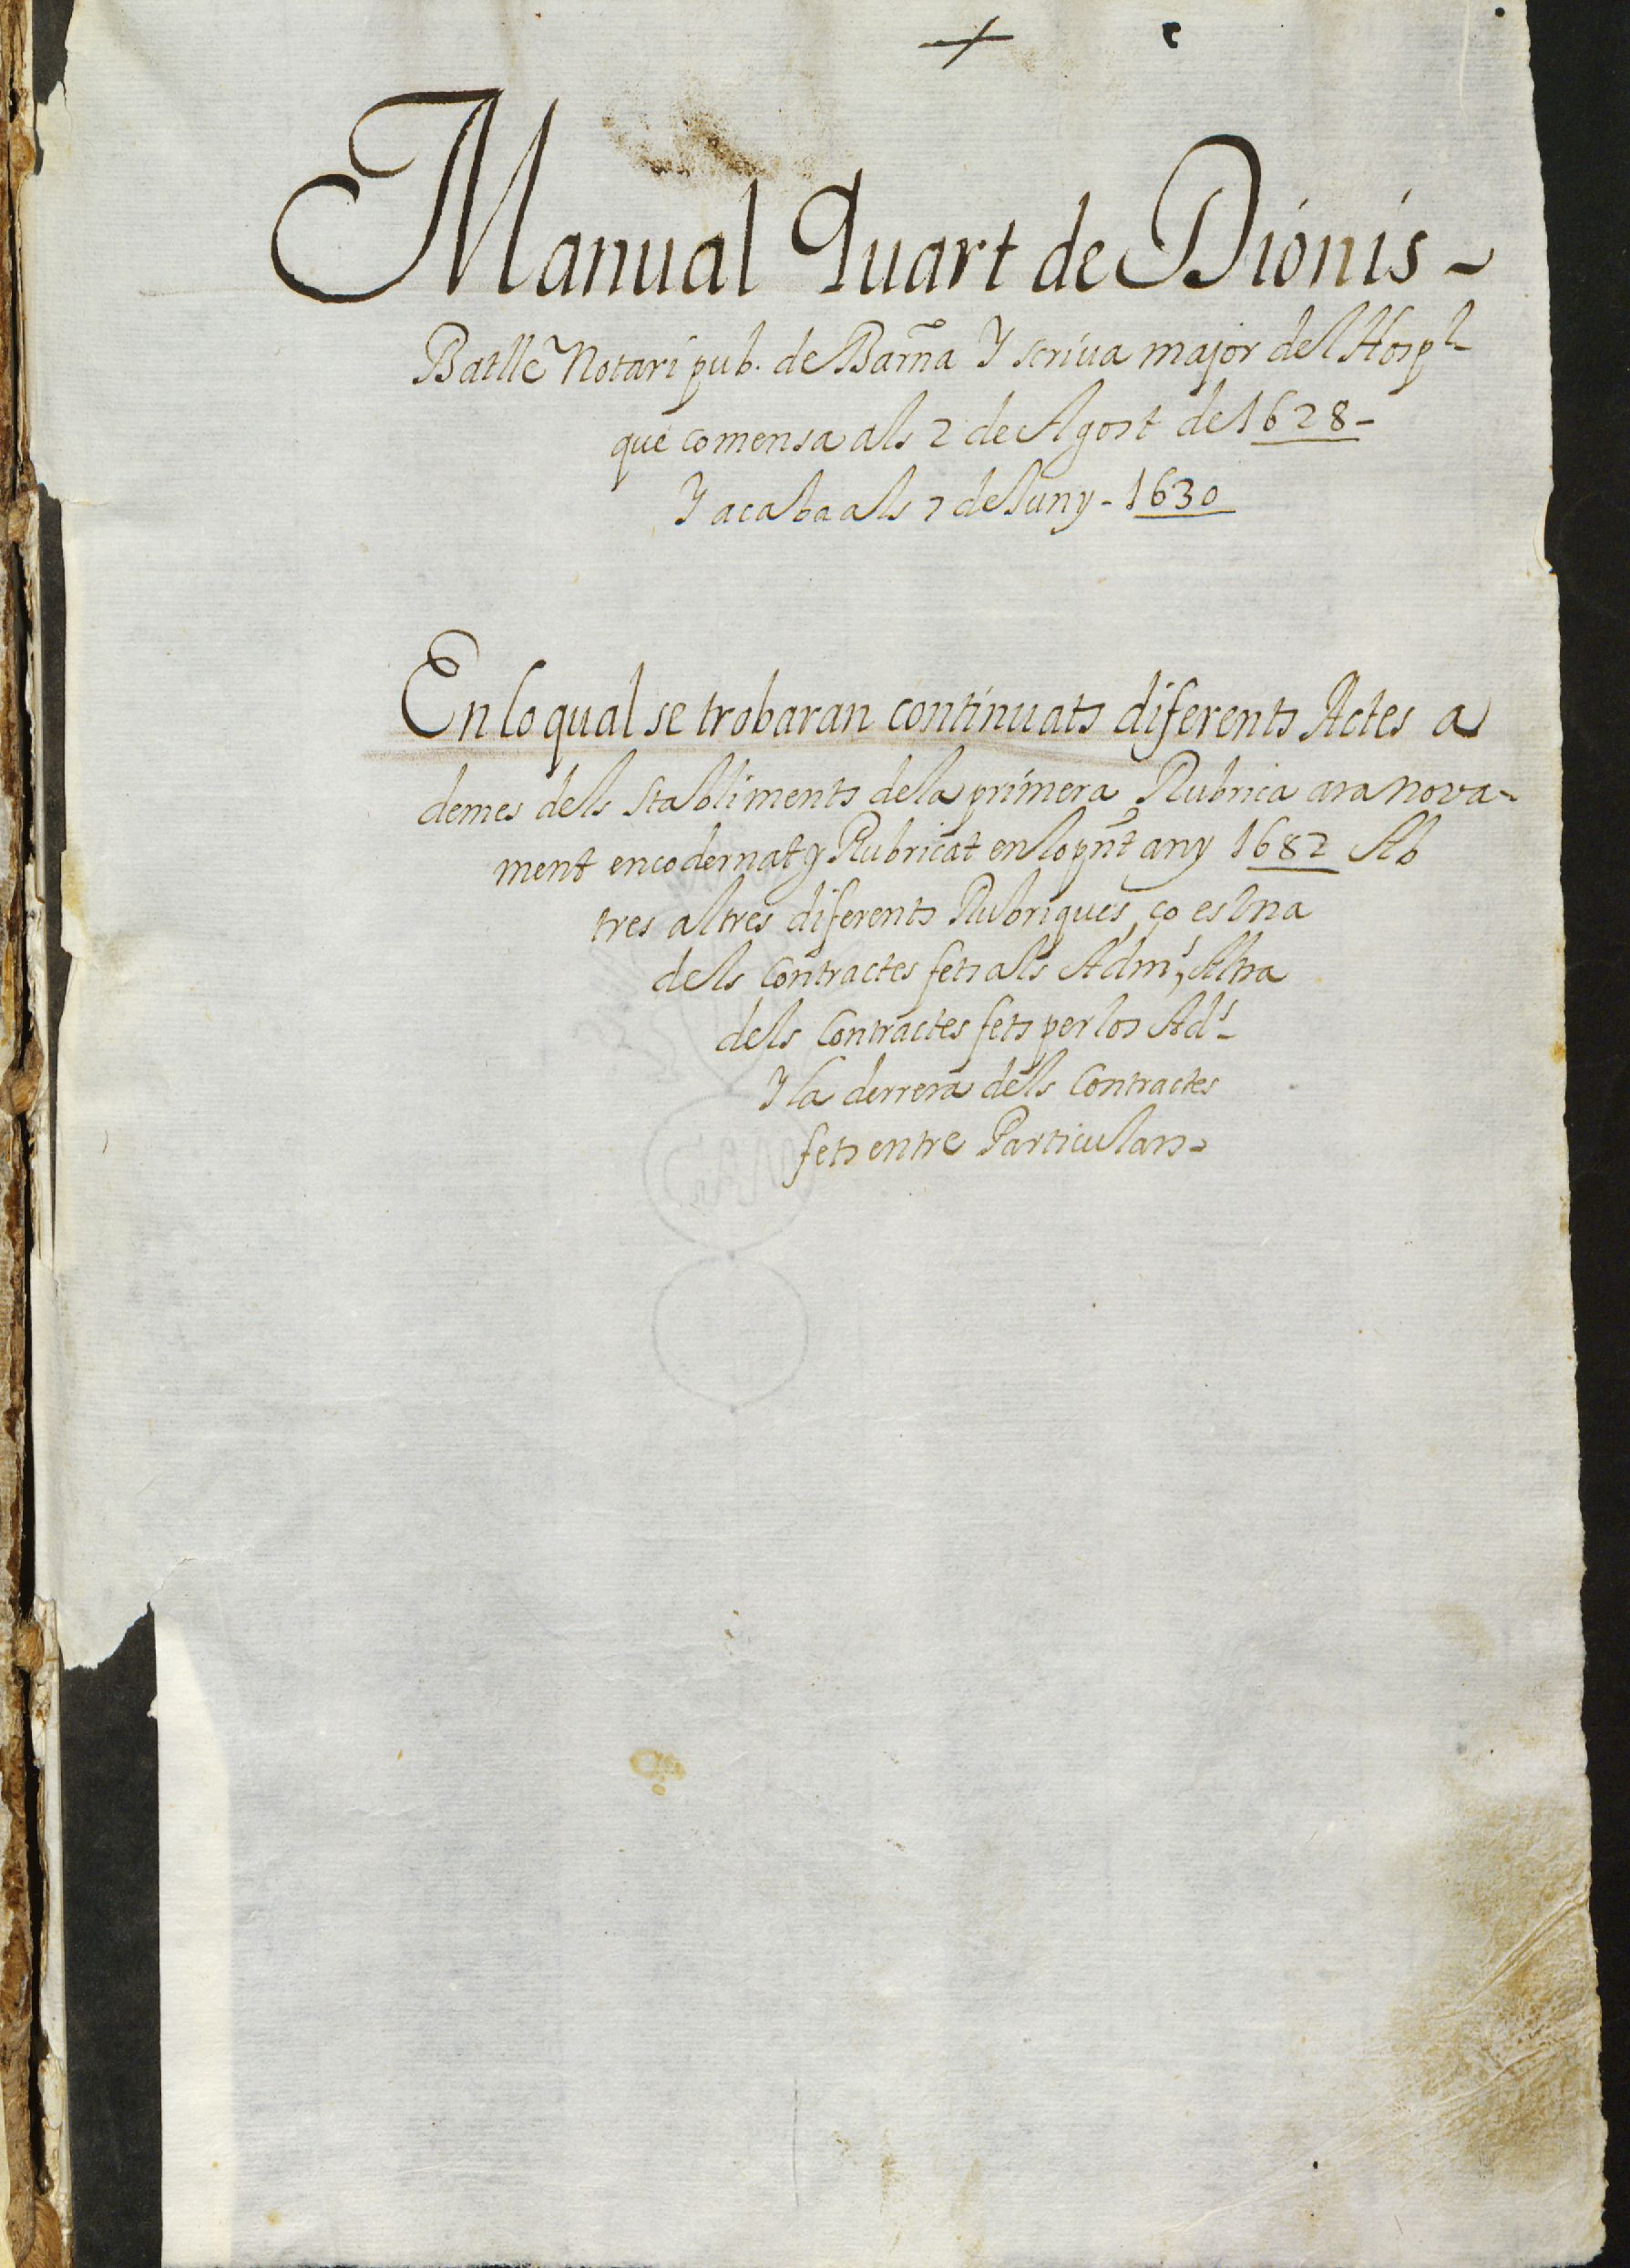 Manual Quart de Dionis -
Batlle Notari pub. de Bar̃na Y scriua major del Hosp.l
que comensa als 2 de Agost de 1628 -
Y acaba als 7 de Juny - 1630
En lo qual se trobaran continuats diferents Actes a
demes dels stabliments de la primera Rubrica ara nova-
ment encodernat y Rubricat en lo pñt any 1682 Ab
tres altres diferents Rubriques, ço es Una
dels Contractes fets als Adm.s, Altra
dels Contractes fets per los Ad.s -
Y la derrera dels Contractes
fets entre Particulars -